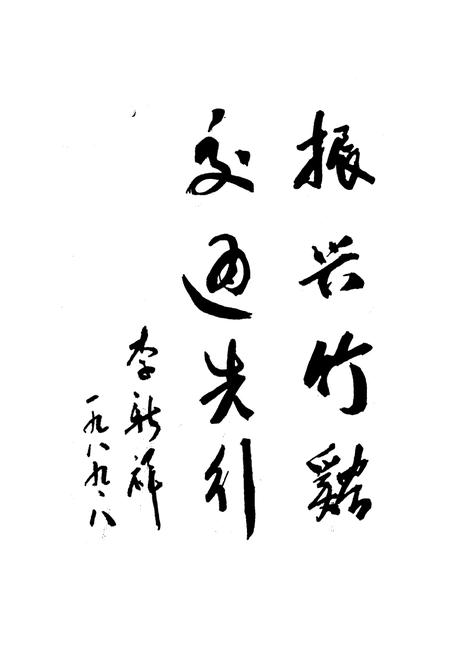 振兴竹谿
交通先行
李新祥
一九八九、八